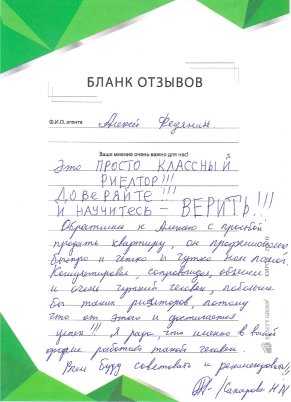 БЛАНК ОТЗЫВОВ
Ф.И.О. агента Алексей Федянин.
Ваше мнение очень важно для нас!
Это ПРОСТО КЛАССНЫЙ
РИЕЛТОР!!!
ДОВЕРЯЙТЕ!!!
И НАУЧИТЕСЬ – ВЕРИТЬ!!!
Обратились к Алексею с просьбой
продать квартиру, он профессионально
быстро и чётко и чутко нам помог.
Консультировал, сопровождал,
и очень чуткий человек, побольше
бы таких риэлторов, потому
что от этого и достигается
успех!!! Я рада, что именно в вашей
фирме работает такой человек.
Всем буду советовать и рекомендовать!
/Сахарова Н.